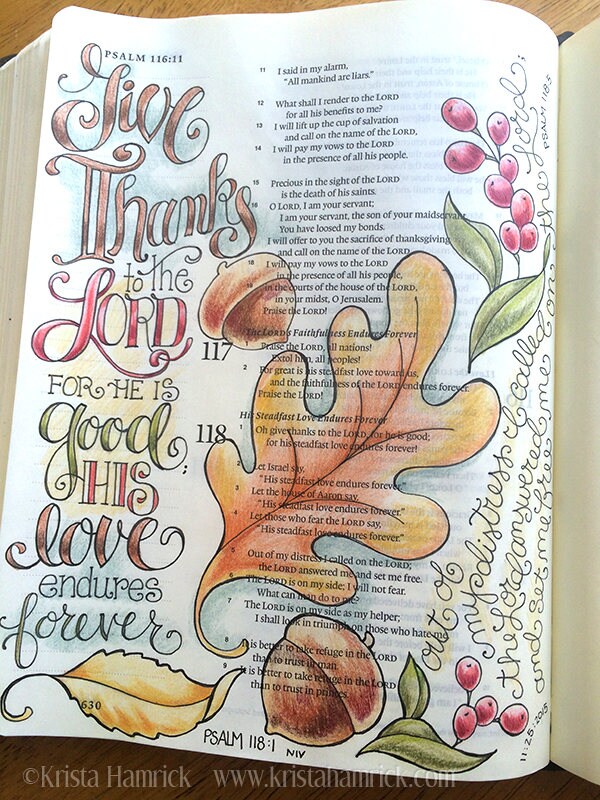 PSALM 116:11
Give
Thanks
to the
LORD
FOR HE IS
good;
HIS
love
endures
forever
630
11 I said in my alarm,
"All mankind are liars."
12 What shall I render to the LORD
for all his benefits to me?
13 I will lift up the cup of salvation
and call on the name of the LORD,
14 I will pay my vows to the LORD
in the presence of all his people.
15 Precious in the sight of the LORD
is the death of his saints.
16 O LORD, I am your servant;
I am your servant, the son of your maidservant.
You have loosed my bonds.
I will offer to you the sacrifice of thanksgiving
and call on the name of the LORD.
18 I will pay my vows to the LORD
in the presence of all his people,
19 in the courts of the house of the LORD,
in your midst, O Jerusalem.
Praise the LORD!
The LORD's Faithfulness Endures Forever
117
1 Praise the LORD, all nations!
Extol him, all peoples!
2 For great is his steadfast love toward us,
and the faithfulness of the LORD endures forever.
Praise the LORD!
His Steadfast Love Endures Forever
118
1 Oh give thanks to the LORD, for he is good;
for his steadfast love endures forever!
2 Let Israel say,
"His steadfast love endures forever."
3 Let the house of Aaron say,
"His steadfast love endures forever."
4 Let those who fear the LORD say,
"His steadfast love endures forever."
5 Out of my distress I called on the LORD;
the LORD answered me and set me free.
6 The LORD is on my side; I will not fear.
What can man do to me?
7 The LORD is on my side as my helper;
I shall look in triumph on those who hate me.
8 It is better to take refuge in the LORD
than to trust in man.
9 It is better to take refuge in the LORD
than to trust in princes.
PSALM 118:1
NIV
out of
my distress I called on the Lord;
the Lord answered me
and set me free.
PSALM 118:5
11.25.2015
©Krista Hamrick www.kristahamrick.com